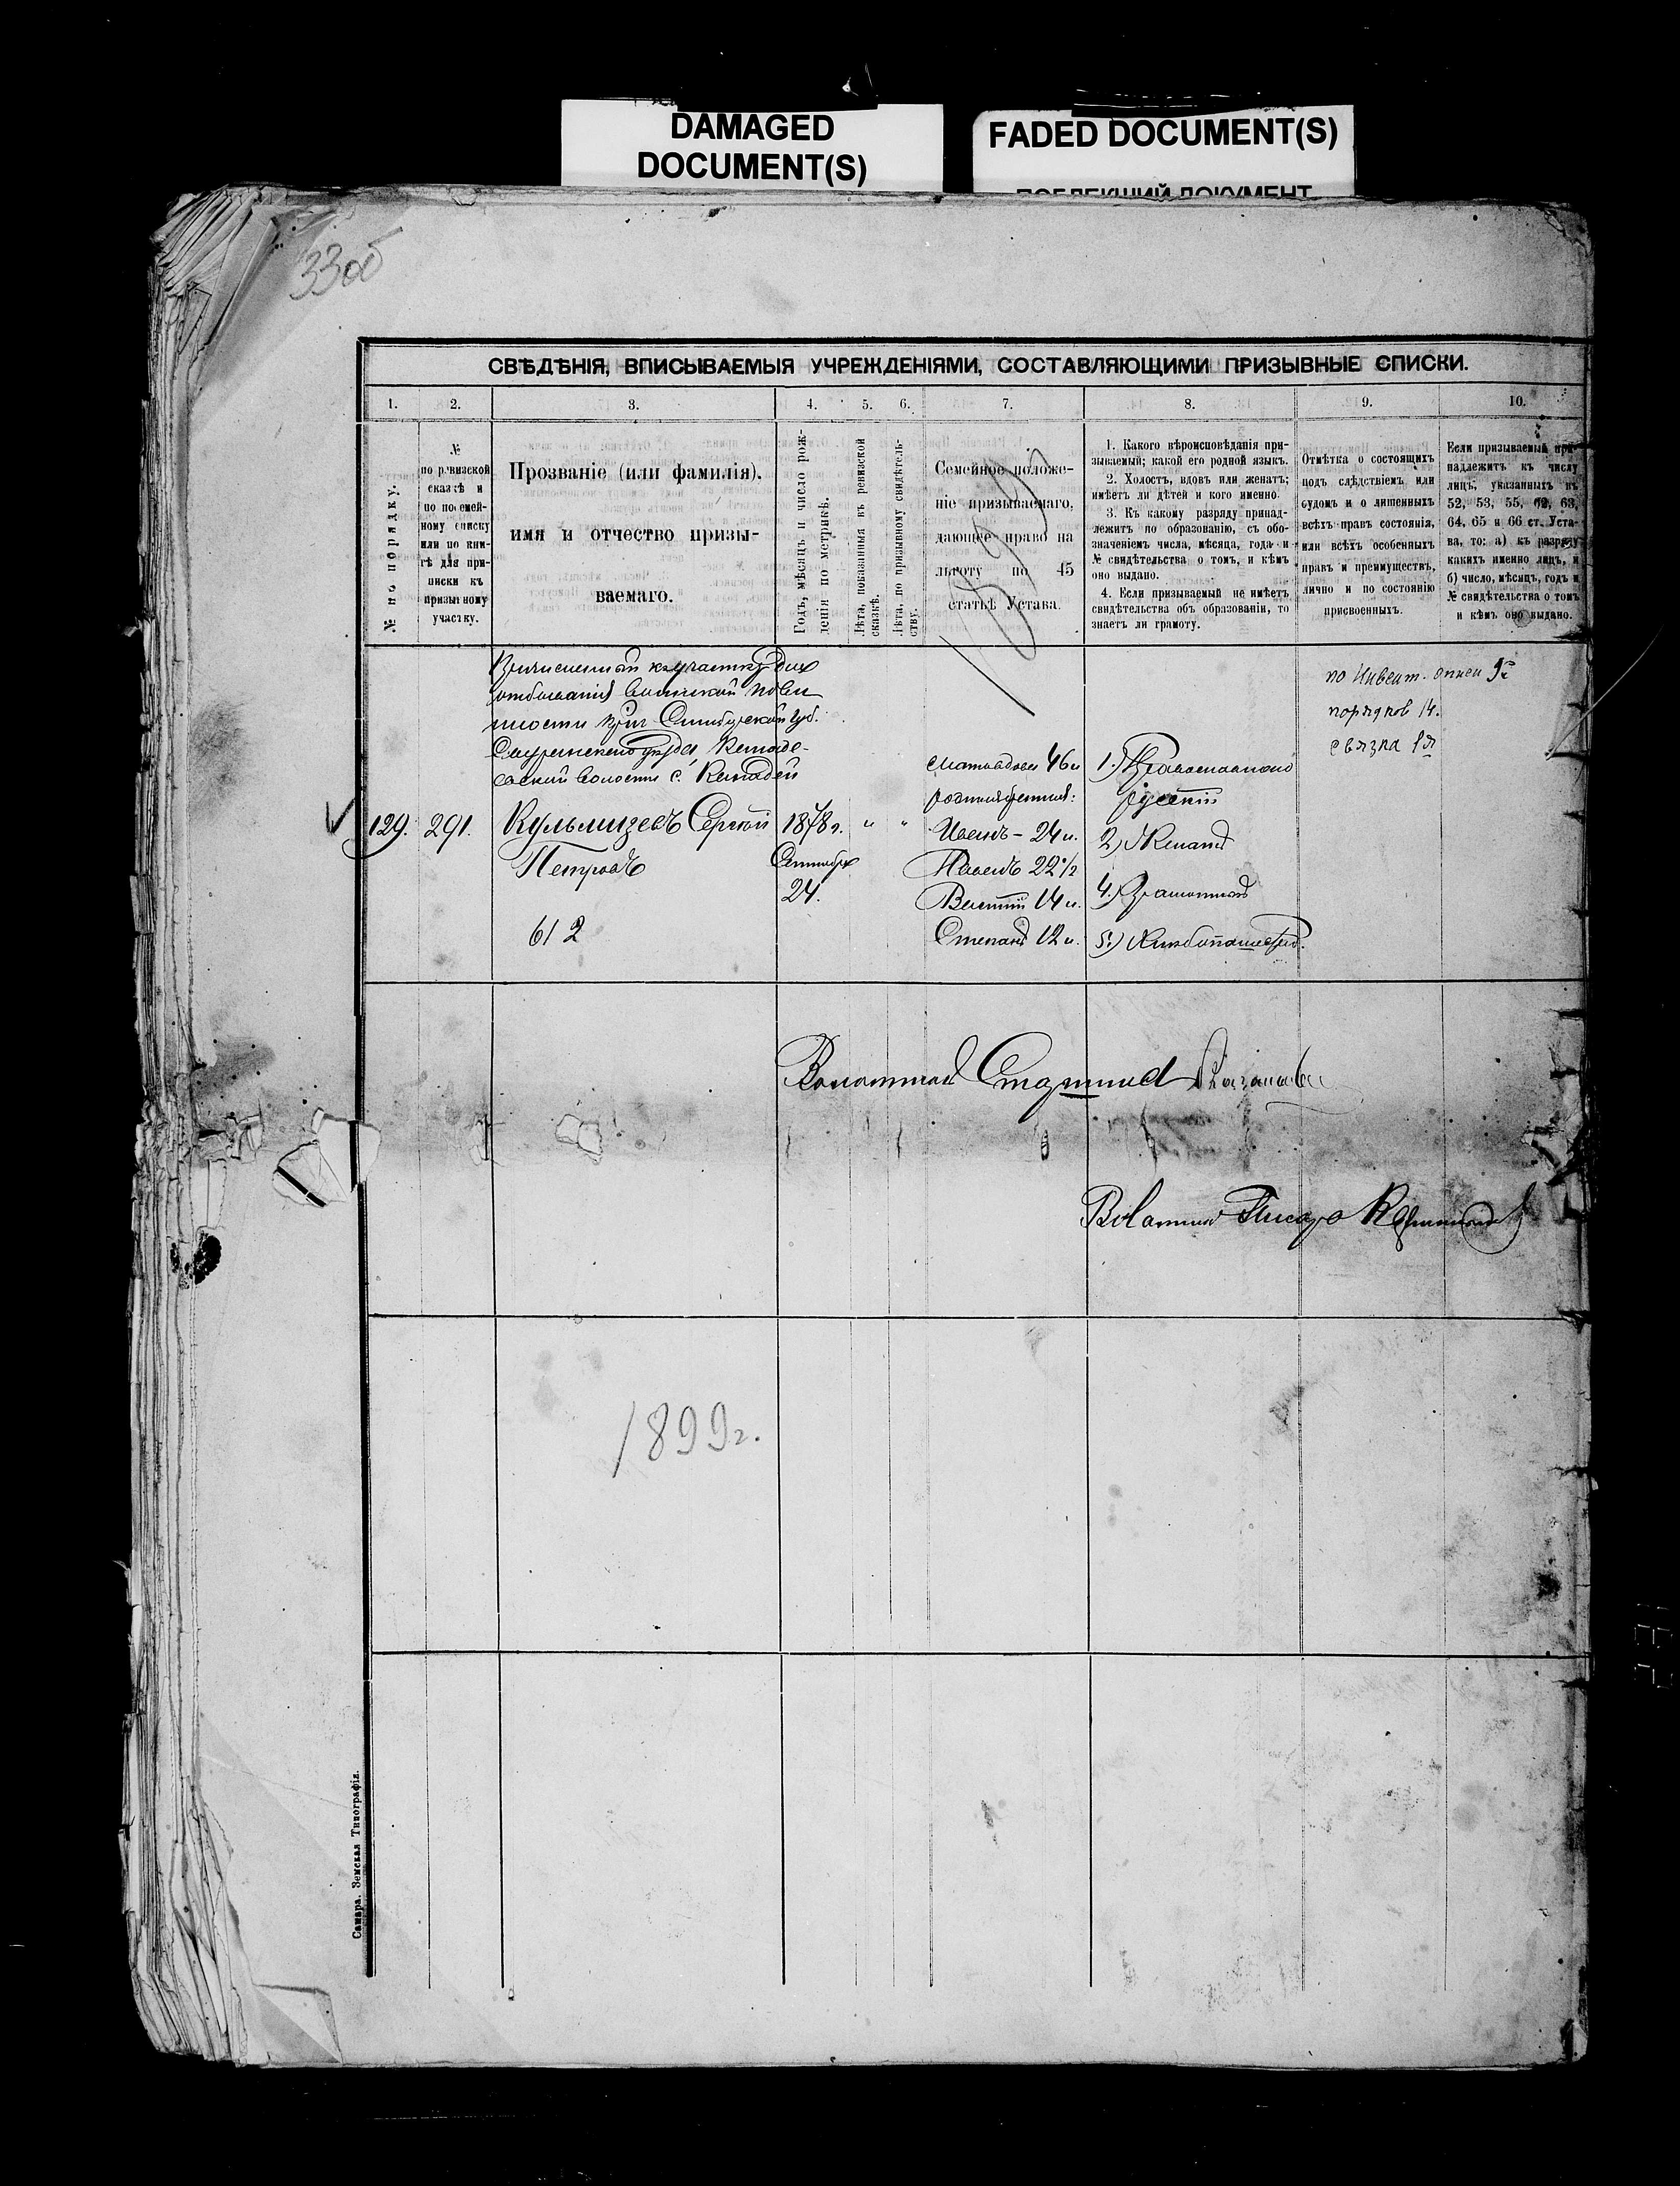 DAMAGED
DOCUMENT(S)
FADED DOCUMENT(S)
330б
СВѢДѢНІЯ, ВПИСЫВАЕМЫЯ УЧРЕЖДЕНІЯМИ, СОСТАВЛЯЮЩИМИ ПРИЗЫВНЫЕ СПИСКИ.
1. 2. 3. 4. 5. 6. 7. 8. 9. 10.
№ по порядку.
№
по ревизской
сказкѣ и
по посемей-
ному списку
или по кни-
гѣ для при-
писки къ
призывному
участку.
Прозваніе (или фамилія).
имя и отчество призы-
ваемаго.
Годъ, мѣсяцъ и число рож-
денія по метрикѣ.
Лѣта, показанныя въ ревизской
сказкѣ.
Лѣта, по призывному свидѣтель-
ству.
Семейное положе-
ніе призываемаго,
дающее право на
льготу по 45
статьѣ Устава.
1. Какого вѣроисповѣданія при-
зываемый; какой его родной языкъ.
2. Холостъ, вдовъ или женатъ;
имѣетъ ли дѣтей и кого именно.
3. Къ какому разряду принад-
лежитъ по образованію, съ обо-
значеніемъ числа, мѣсяца, года и
№ свидѣтельства о томъ, и кѣмъ
оно выдано.
4. Если призываемый не имѣетъ
свидѣтельства объ образованіи, то
знаетъ ли грамоту.
Отмѣтка о состоящихъ
подъ слѣдствіемъ или
судомъ и о лишенныхъ
всѣхъ правъ состоянія,
или всѣхъ особенныхъ
правъ и преимуществъ,
лично и по состоянію
присвоенныхъ.
Если призываемый при-
надлежитъ къ числу
лицъ, указанныхъ въ
52, 53, 55, 62, 63,
64, 65 и 66 ст. Уста-
ва, то: а) къ разряду
какихъ именно лицъ, и
б) число, мѣсяцъ, годъ и
№ свидѣтельства о томъ
и кѣмъ оно выдано.
1899
къ участку для
отбыванія воинской повин
ности Симбирской губ.
волости с.
129. 291. Кульмизевъ Сергей
Петровъ
612
1878 г. " "
Сентября
24.
мать вдова 46 л
Иванъ – 24 л.
Павелъ 22 ½
14 л.
Степанъ 12 л.
1.) Православнаго
русскій
2) Женатъ
4.) Грамотный
5.)
по Инвент. описи
порядков 14.
связка 1я
Волостной Старшина
Волостной Писарь
1899 г.
Самара. Земская Типографія.